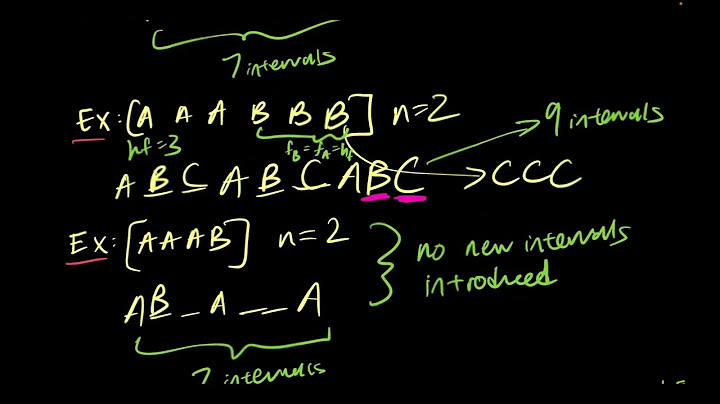 7 intervals
Ex: [A A A B B B] n=2
hf=3 fB = fA = hf
9 intervals
A B C A B C A B C → CCC
Ex: [AAAB] n=2
no new intervals
introduced
AB _ A _ _ A
7 intervals